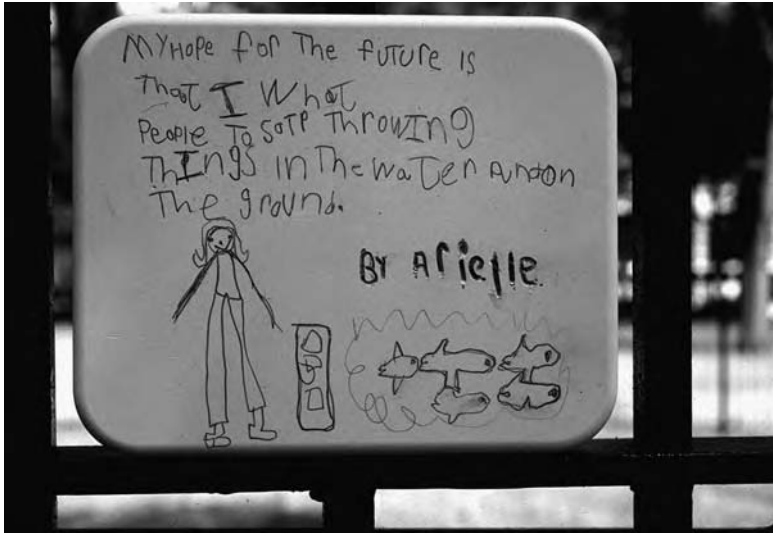 MY HOPE for The fuTure is
That I What
PeoPle To SoTP ThrowINg
ThINgS in The waTer AndoN
The ground.
By Arielle.